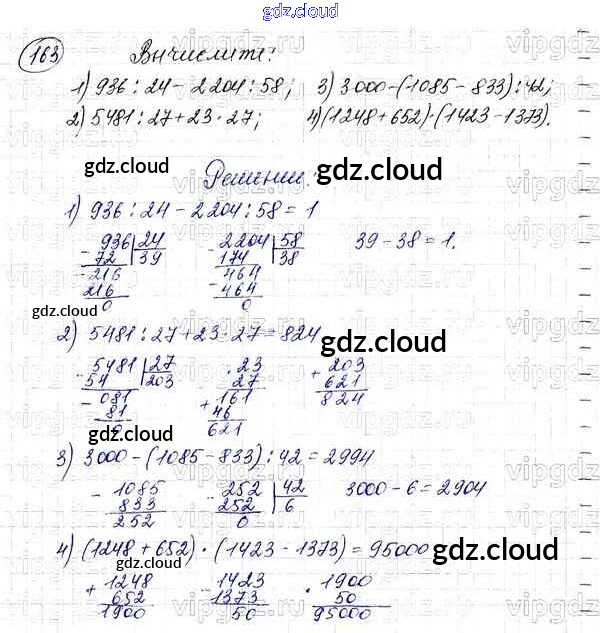 gdz.cloud
163 Вычислите:
1) 936 : 24 - 2204 : 58; 3) 3000 - (1085 - 833) : 42;
2) 5481 : 27 + 23 · 27; 4) (1248 + 652) · (1423 - 1373).
gdz.cloud gdz.cloud
Решение:
1) 936 : 24 - 2204 : 58 = 1
- 936 | 24 - 2204 | 58 39 - 38 = 1.
72 39 174 38
- 216 - 464
216 464
0 0
gdz.cloud gdz.cloud gdz.cloud
2) 5481 : 27 + 23 · 27 = 824
gdz.cloud
- 5481 | 27 · 23 + 203
54 203 27 621
- 081 + 161 824
81 46
0 621
gdz.cloud gdz.cloud
3) 3000 - (1085 - 833) : 42 = 2994
- 1085 - 252 | 42 3000 - 6 = 2904
833 252 6
252 0
4) (1248 + 652) · (1423 - 1373) = 95000
gdz.cloud
+ 1248 - 1423 · 1900
652 1373 50
1900 50 95000
gdz.cloud gdz.cloud gdz.cloud